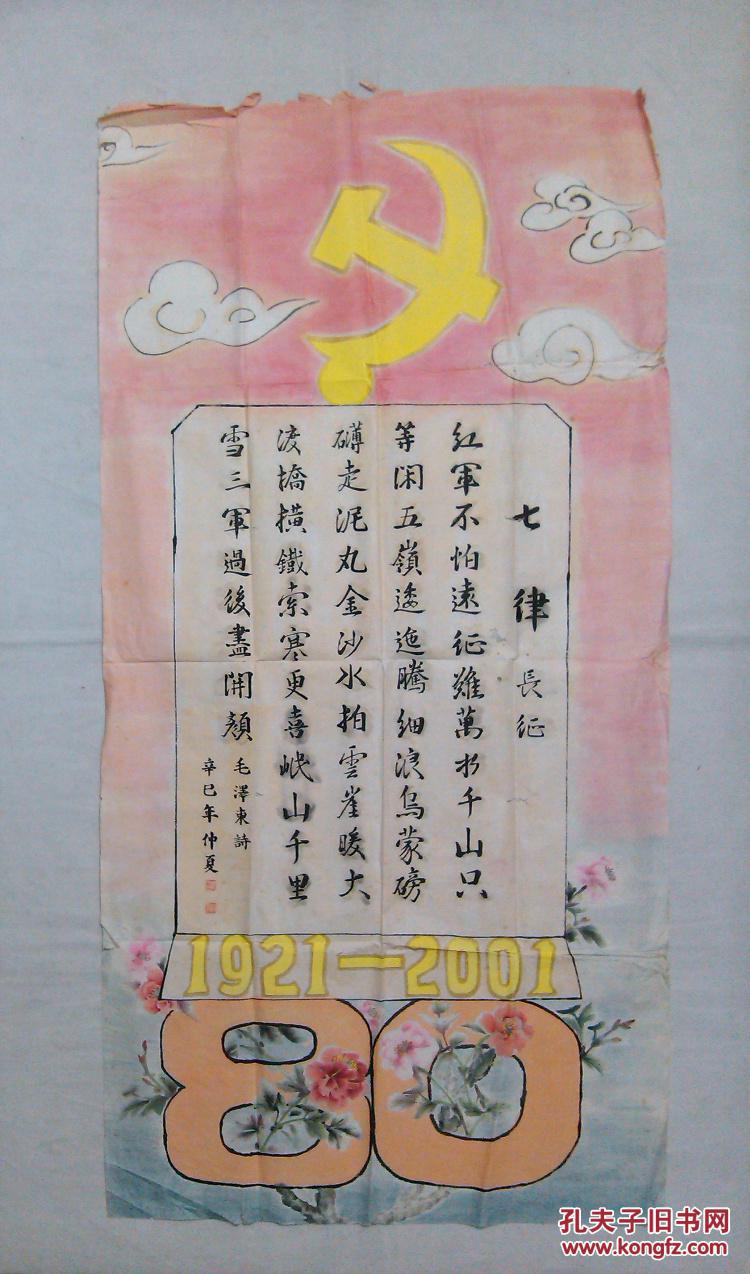 七律 長征
红軍不怕遠征難萬水千山只
等闲五嶺逶迤騰细浪烏蒙磅
礴走泥丸金沙水拍雲崖暖大
渡橋横鐵索寒更喜岷山千里
雪三軍過後盡開顏
毛澤東詩
辛巳年仲夏
1921—2001
80
孔夫子旧书网
www.kongfz.com